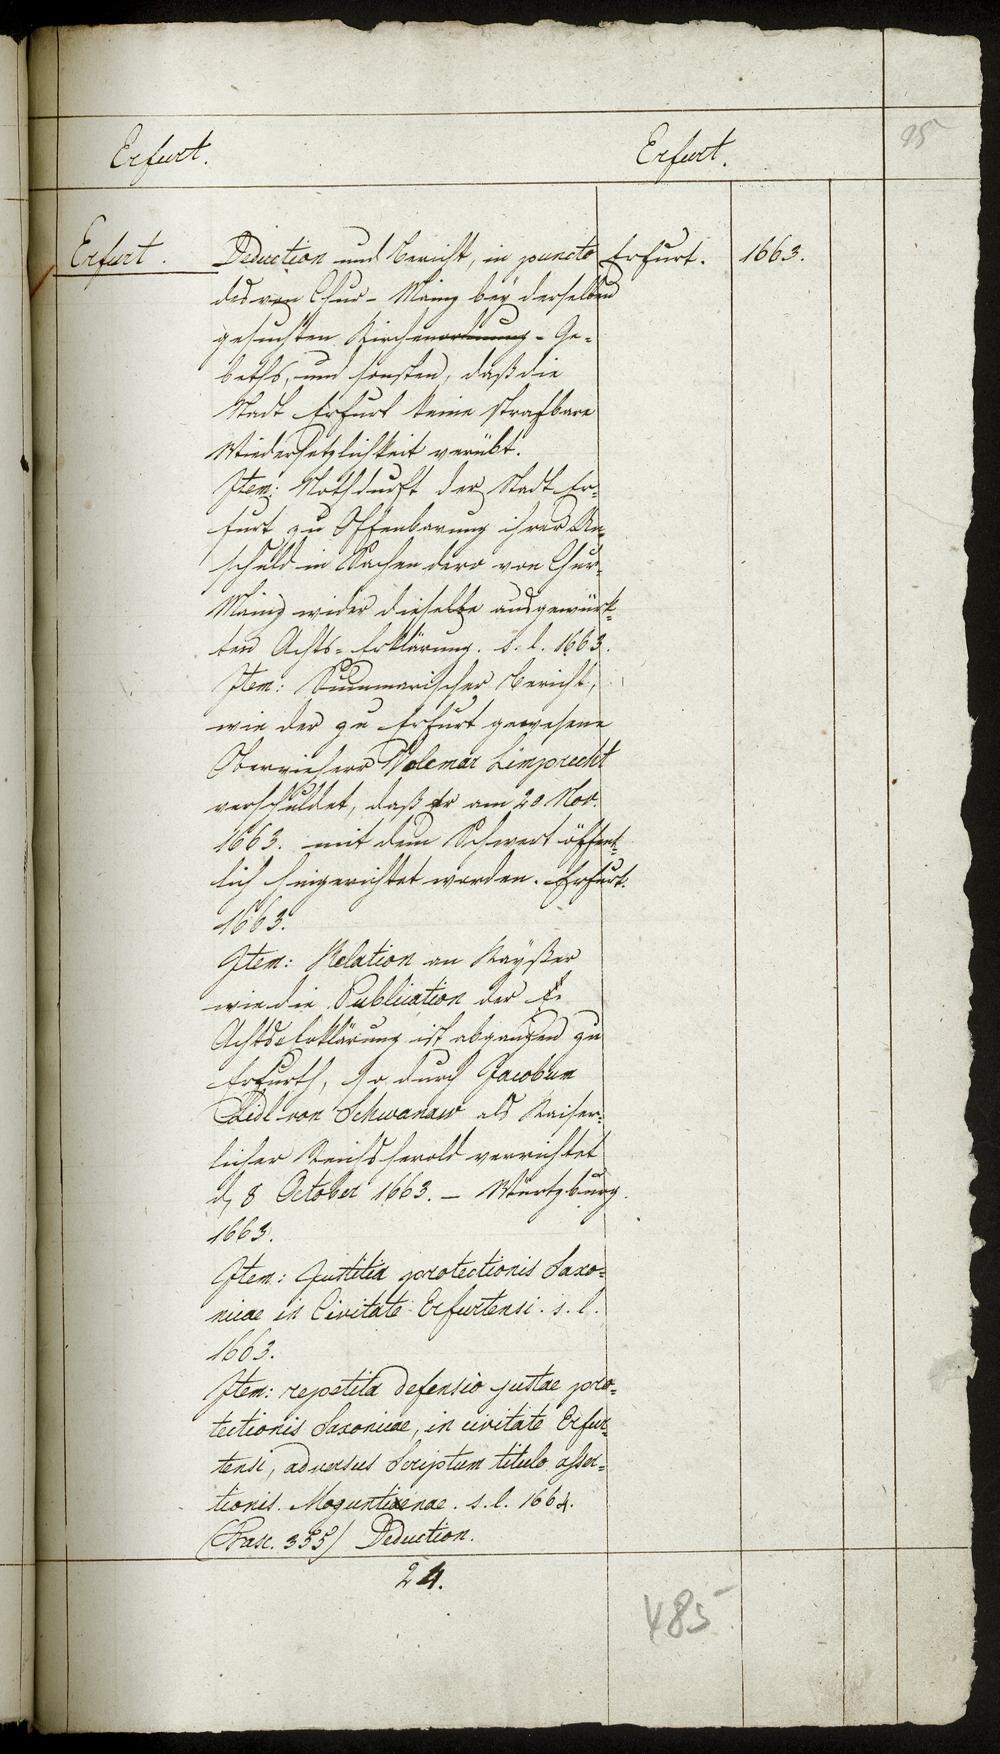 95
Erfurt. Erfurt.
Erfurt. Deduction und Bericht, in puncto Erfurt. 1663.
des von Chur-Mainz bey derselben
gesuchten Kirchenordnung-Ge-
beths, und sonsten, daß die
Stadt Erfurt keine strafbare
Wiedersetzlichkeit verübt.
Item: Nothdurft der Stadt Er-
furt zu Offenbarung ihrer Un-
schuld in Sachen dero von Chur-
Mainz wider dieselbe ausgewürk-
ten Achts-Erklärung. s. l. 1663.
Item: Summarischer Bericht,
wie der zu Erfurt gewesene
Obervierherr Volcmar Limprecht
verschuldet, daß er am 20 Nov.
1663. mit dem Schwert öffent-
lich hingerichtet worden. Erfurt.
1663.
Item: Relation an Kayßer
wie die Publication der E.
Achtserklärung ist abgangen zu
Erfurth, so durch Jacobum
Lidl von Schwanaw als Kaiser-
licher Reichsherold verrichtet
d. 8 October 1663. – Würtzburg.
1663.
Item: Justitia protectionis Saxo-
nicae in Civitate Erfurtensi. s. l.
1663.
Item: repetita defensio justae pro-
tectionis Saxonicae, in civitate Erfur-
tensi, adversus Scriptum titulo asser-
tionis Moguntinae. s. l. 1664.
(Fasc. 355) Deduction.
24.
485